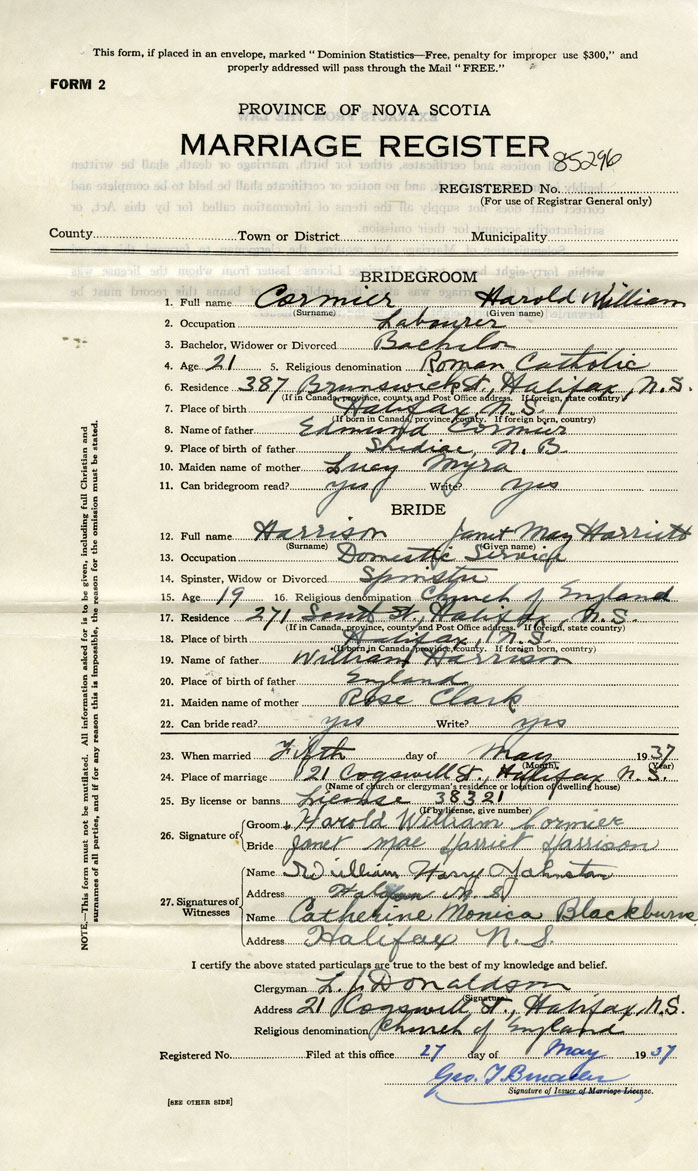 This form, if placed in an envelope, marked "Dominion Statistics—Free, penalty for improper use $300," and
properly addressed will pass through the Mail "FREE."
FORM 2
PROVINCE OF NOVA SCOTIA
MARRIAGE REGISTER
85296
REGISTERED No.
(For use of Registrar General only)
County Town or District Municipality
BRIDEGROOM
1. Full name Cormier Harold William
(Surname) (Given name)
2. Occupation Labourer
3. Bachelor, Widower or Divorced Bachelor
4. Age 21 5. Religious denomination Roman Catholic
6. Residence 387 Brunswick St, Halifax, N.S.
(If in Canada, province, county and Post Office address. If foreign, state country)
7. Place of birth Halifax, N.S.
(If born in Canada, province, county. If foreign born, country)
8. Name of father Edmund Cormier
9. Place of birth of father Shediac, N.B.
10. Maiden name of mother Lucy Myra
11. Can bridegroom read? yes Write? yes
BRIDE
12. Full name Harrison Janet May Harriett
(Surname) (Given name)
13. Occupation Domestic Service
14. Spinster, Widow or Divorced Spinster
15. Age 19 16. Religious denomination Church of England
17. Residence 271 South St., Halifax, N.S.
(If in Canada, province, county and Post Office address. If foreign, state country)
18. Place of birth Halifax, N.S.
(If born in Canada, province, county. If foreign born, country)
19. Name of father William Harrison
20. Place of birth of father England
21. Maiden name of mother Rose Clark
22. Can bride read? yes Write? yes
23. When married Fifth day of May 1937
(Month) (Year)
24. Place of marriage 21 Cogswell St., Halifax N.S.
(Name of church or clergyman's residence or location of dwelling house)
25. By license or banns License 38321
(If by license, give number)
26. Signature of Groom Harold William Cormier
Bride Janet Mae Harriet Harrison
27. Signatures of Witnesses
Name William Harry Johnston
Address Halifax N.S.
Name Catherine Monica Blackburn
Address Halifax N.S.
I certify the above stated particulars are true to the best of my knowledge and belief.
Clergyman L. J. Donaldson
(Signature)
Address 21 Cogswell St., Halifax, N.S.
Religious denomination Church of England
Registered No. Filed at this office 27 day of May 1937
Geo. T
Signature of Issuer of Marriage License.
[SEE OTHER SIDE]
NOTE.—This form must not be mutilated. All information asked for is to be given, including full Christian and
surnames of all parties, and if for any reason this is impossible, the reason for the omission must be stated.